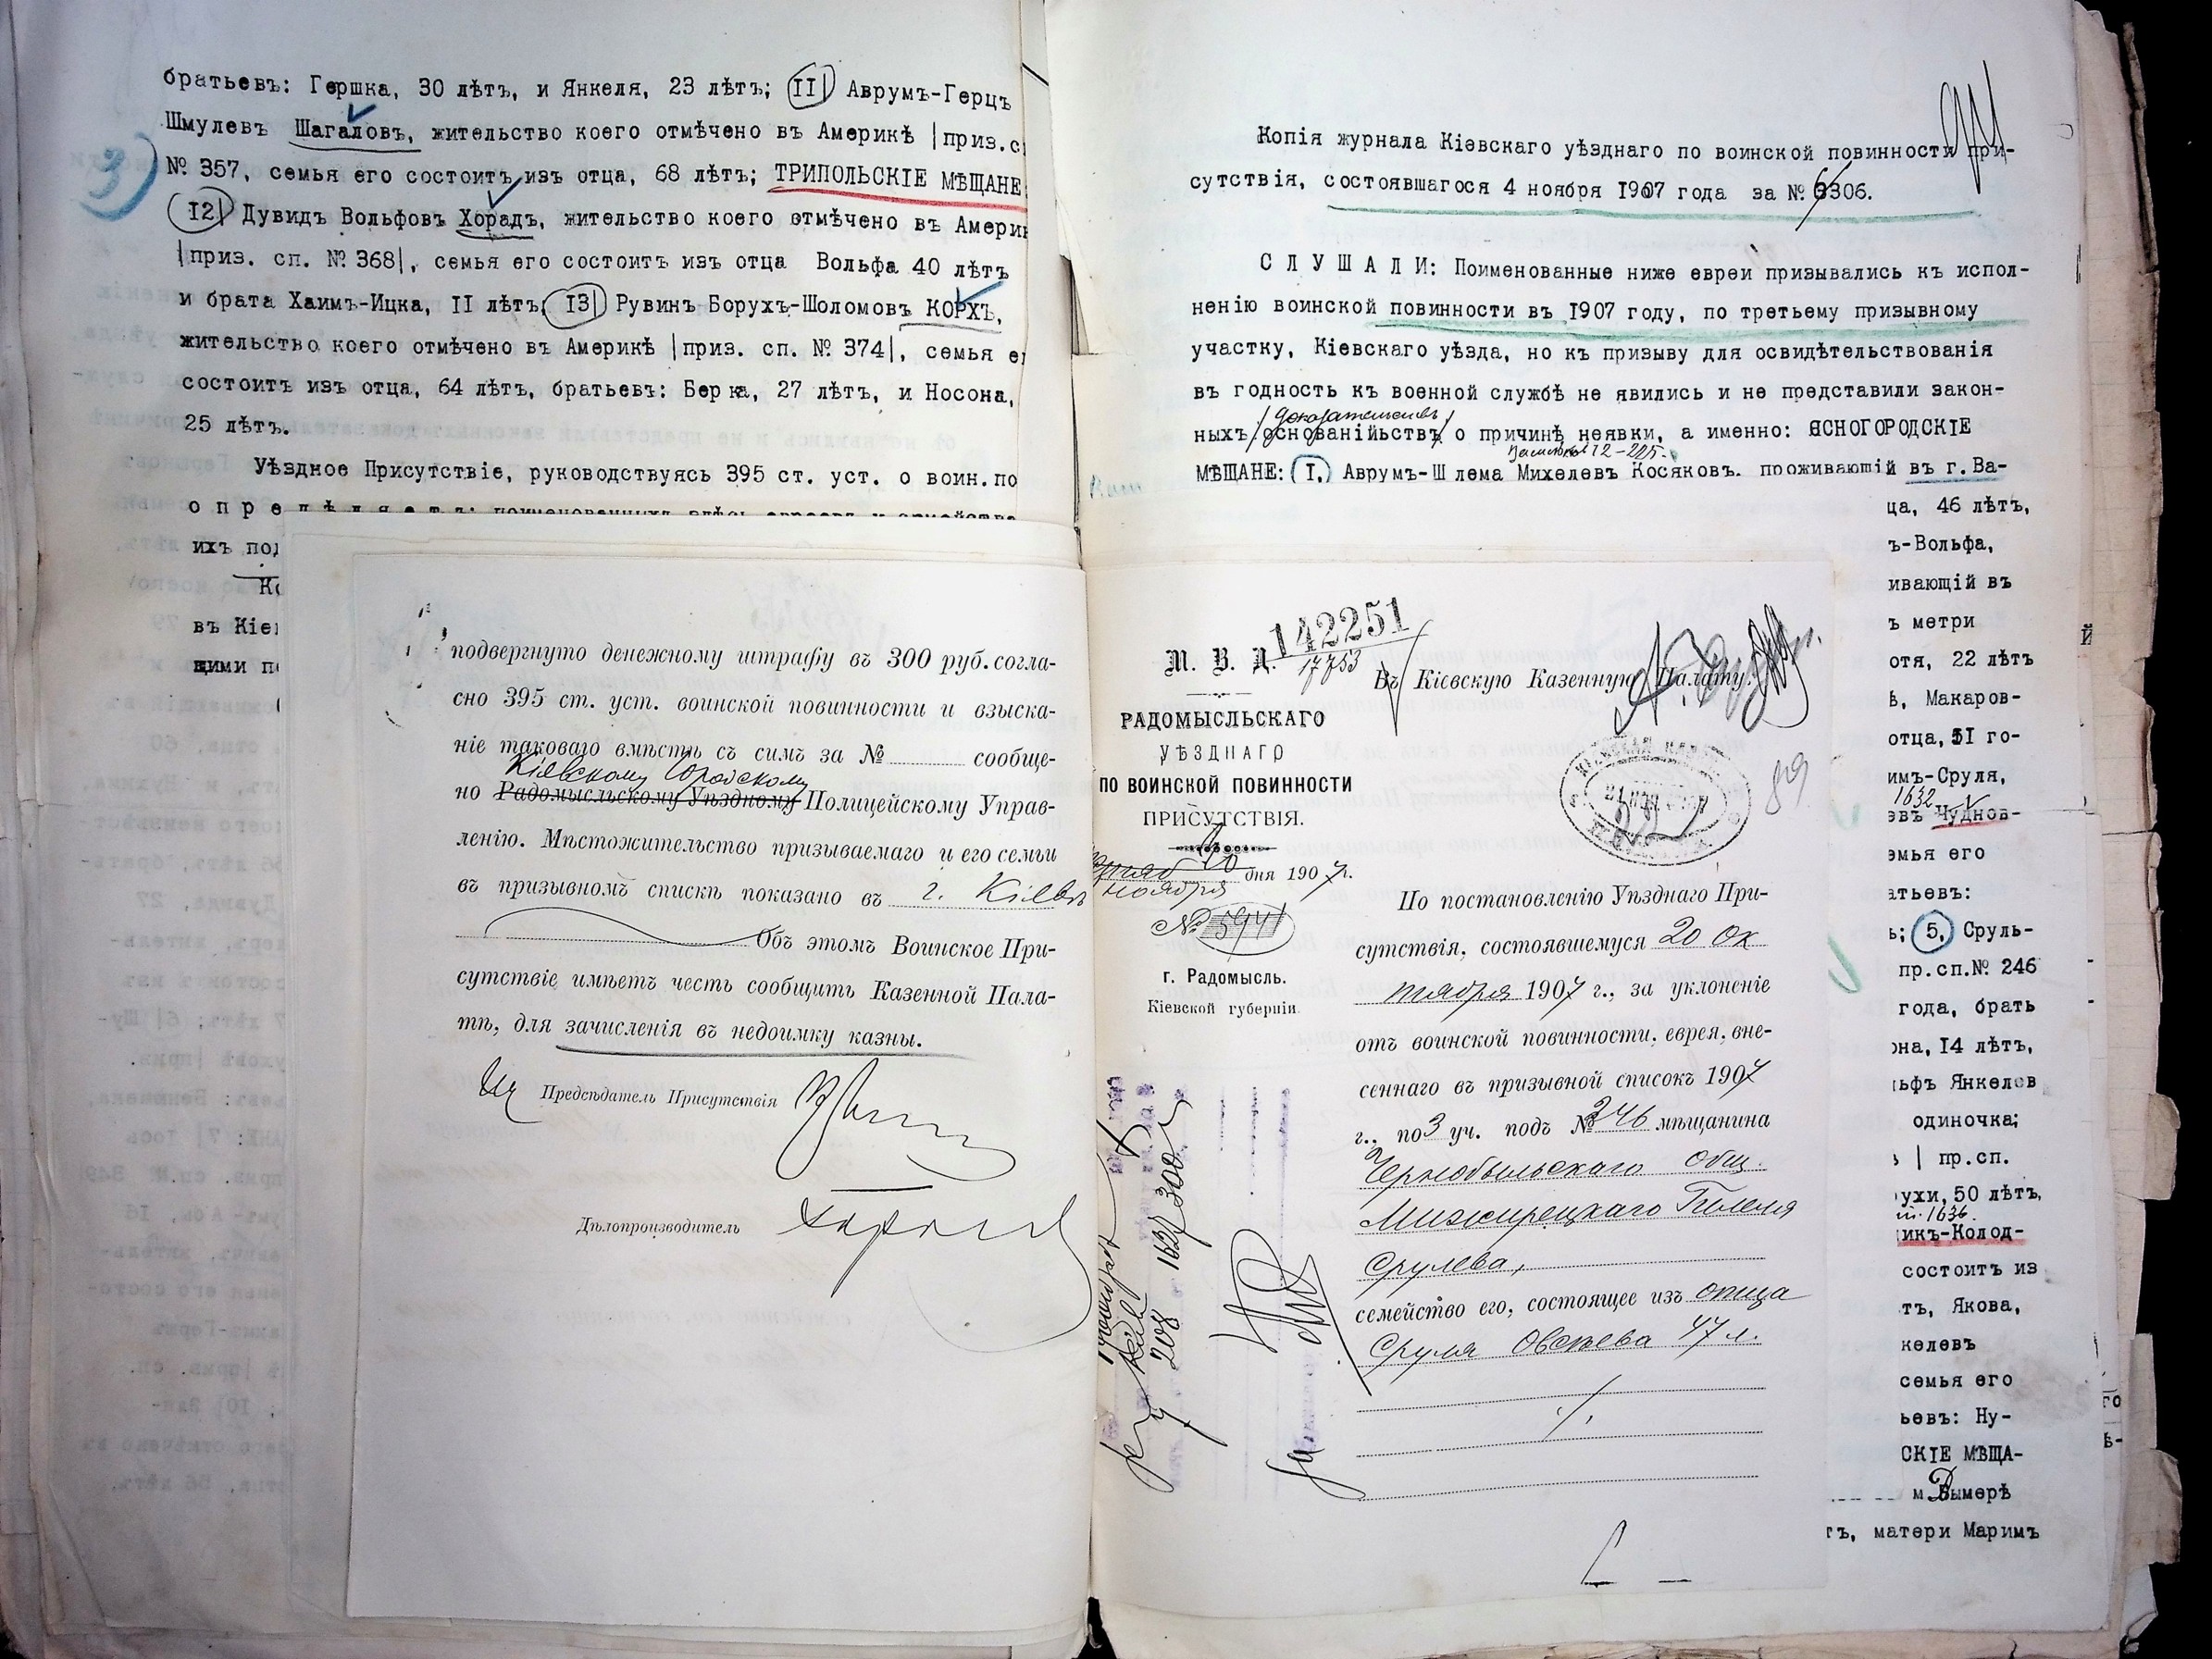 братьевъ: Гершка, 30 лѣтъ, и Янкеля, 23 лѣтъ; II| Аврумъ-Герцъ
Шмулевъ Шагаловъ, жительство коего отмѣчено въ Америкѣ |приз.с
3)
№ 357, семья его состоитъ изъ отца, 68 лѣтъ; ТРИПОЛЬСКІЕ МѢЩАНЕ
I2| Дувидъ Вольфовъ Хорадъ, жительство коего отмѣчено въ Америк
|приз. сп. № 368|, семья его состоитъ изъ отца Вольфа 40 лѣтъ
и брата Хаимъ-Ицка, II лѣтъ; I3| Рувинъ Борухъ-Шоломовъ КОРХЪ,
жительство коего отмѣчено въ Америкѣ |приз. сп. № 374|, семья е
состоитъ изъ отца, 64 лѣтъ, братьевъ: Берка, 27 лѣтъ, и Носона,
25 лѣтъ.
Уѣздное Присутствіе, руководствуясь 395 ст. уст. о воин.по
о п р е д ѣ л я е т ъ: поименованныхъ здѣсь евреевъ и
ихъ под
въ Кіе
щими п
подвергнуто денежному штрафу въ 300 руб. согла-
сно 395 ст. уст. воинской повинности и взыска-
ніе таковаго вмѣстѣ съ симъ за № сообще-
Кіевскому Городскому
но Радомысльскому Уѣздному Полицейскому Управ-
ленію. Мѣстожительство призываемаго и его семьи
въ призывномъ спискѣ показано въ г. Кіевѣ
Объ этомъ Воинское При-
сутствіе имѣетъ честь сообщить Казенной Пала-
тѣ, для зачисленія въ недоимку казны.
Предсѣдатель Присутствія
Дѣлопроизводитель
Копія журнала Кіевскаго уѣзднаго по воинской повинности при-
сутствія, состоявшагося 4 ноября 1907 года за № 6306.
С Л У Ш А Л И: Поименованные ниже евреи призывались къ испол-
ненію воинской повинности въ 1907 году, по третьему призывному
участку, Кіевскаго уѣзда, но къ призыву для освидѣтельствованія
въ годность къ военной службѣ не явились и не представили закон-
доказательствъ
ныхъ основанійьствъ о причинѣ неявки, а именно: ЯСНОГОРОДСКІЕ
МѢЩАНЕ: I, Аврумъ-Шлема Михелевъ Косяковъ. проживающій въ г. Ва-
ца, 46 лѣтъ,
ъ-Вольфа,
ивающій въ
ъ метри
отя, 22 лѣтъ
ѣ, Макаров-
отца, 5I го-
имъ-Сруля,
1632
евъ Чуднов-
емья его
атьевъ:
ь; 5, Сруль-
пр.сп.№ 246
года, брать
она, I4 лѣтъ,
ьфъ Янкелев
одиночка;
| пр.сп.
ухи, 50 лѣтъ,
1636
икъ-Колод-
состоитъ из
тъ, Якова,
келевъ
семья его
ьевъ: Ну-
СКІЕ МѢЩА-
м. Дымерѣ
тъ, матери Маримъ
142251
17753
М. В. Д.
РАДОМЫСЛЬСКАГО
УѢЗДНАГО
ПО ВОИНСКОЙ ПОВИННОСТИ
ПРИСУТСТВІЯ.
10 дня 1907 г.
ноября
№ 5941
г. Радомысль.
Кіевской губерніи.
Въ Кіевскую Казенную Палату.
89
По постановленію Уѣзднаго При-
сутствія, состоявшемуся 20 Ок
тября 1907 г., за уклоненіе
отъ воинской повинности, еврея, вне-
сеннаго въ призывной списокъ 1907
г., по 3 уч. подъ № 346 мѣщанина
Чернобыльскаго общ.
Межирецкаго
Срулева,
семейство его, состоящее изъ отца
Сруля Овсѣева 47 л.